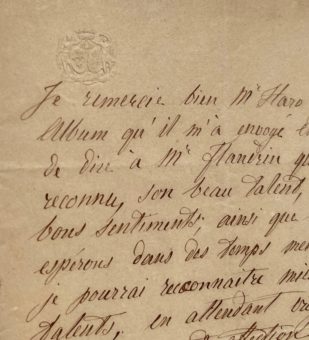 Je remercie bien Mr Haro
Album qu'il m'a envoyé
de dire à Mr Flandrin
reconnu, son beau talent,
bons sentiments; ainsi que
espérons dans des temps
je pourrai reconnaitre
talents; en attendant